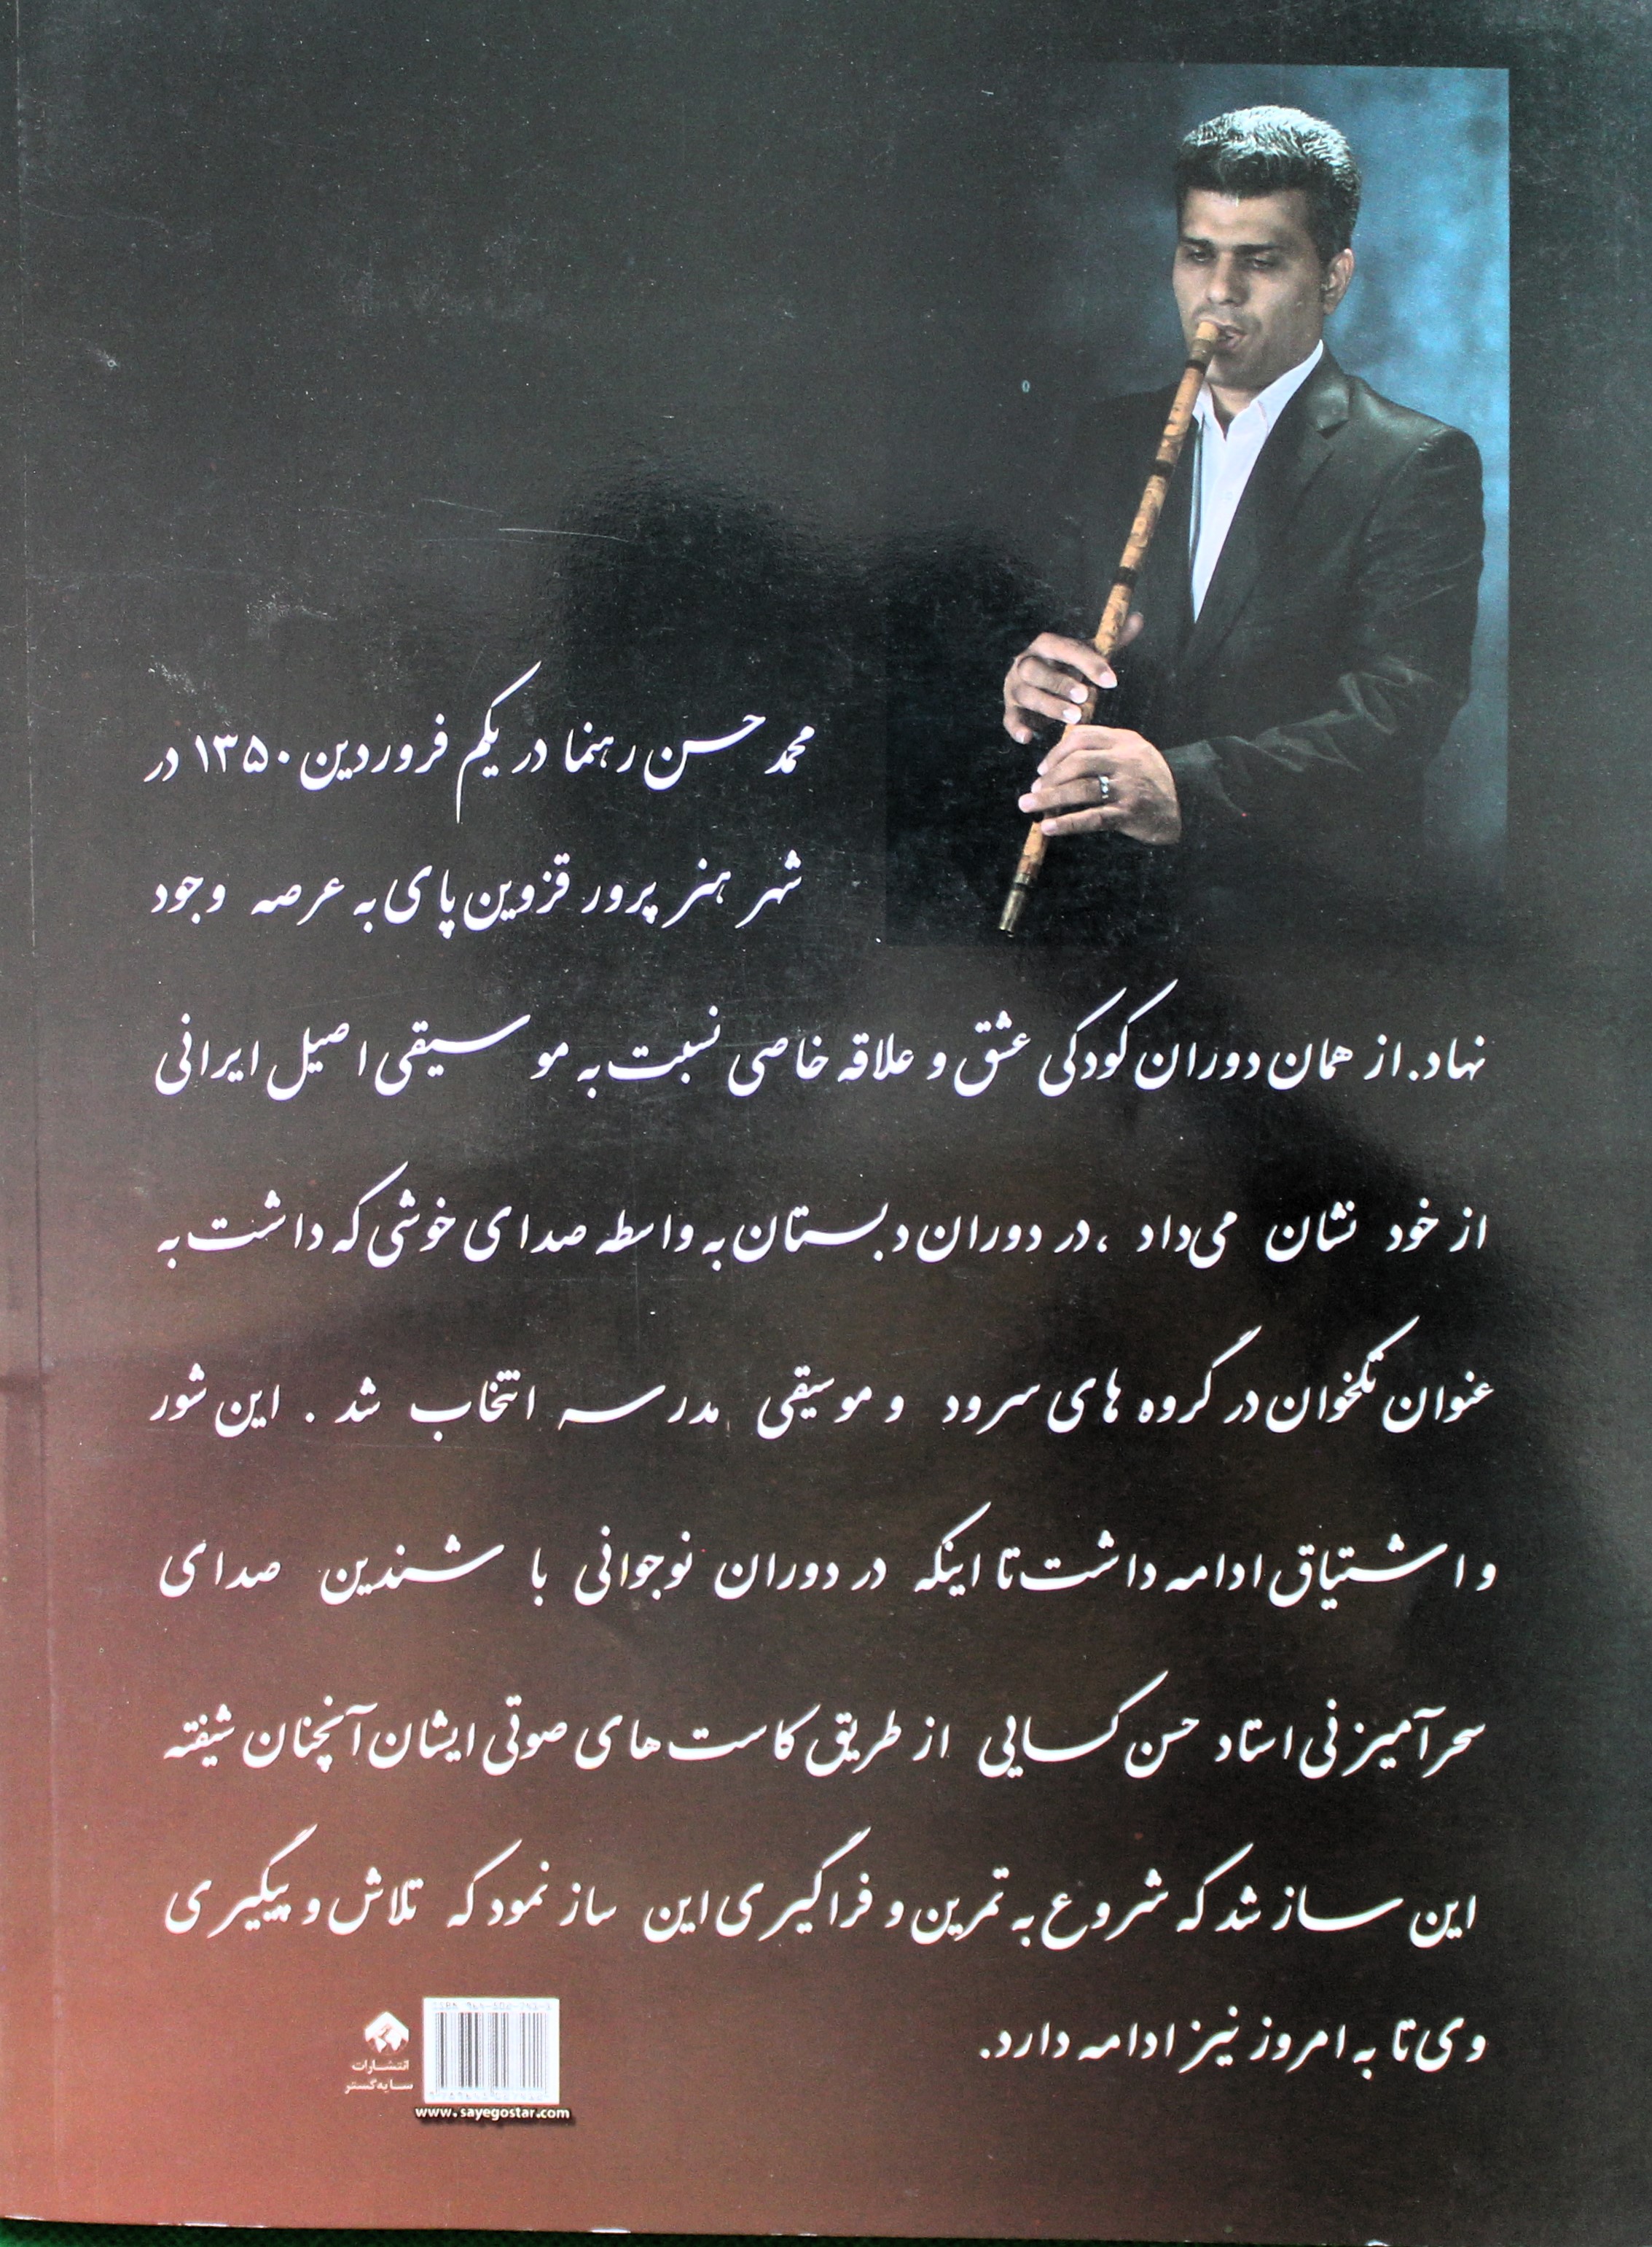 محمد حسن رهنما در یکم فروردین ۱۳۵۰ در
شهر هنر پرور قزوین پای به عرصه وجود
نهاد. از همان دوران کودکی عشق و علاقه خاصی نسبت به موسیقی اصیل ایرانی
از خود نشان می‌داد ، در دوران دبستان به واسطه صدای خوشی که داشت به
عنوان تکخوان در گروه های سرود و موسیقی مدرسه انتخاب شد . این شور
و اشتیاق ادامه داشت تا اینکه در دوران نوجوانی با شندین صدای
سحرآمیز نی استاد حسن کسایی از طریق کاست های صوتی ایشان آنچنان شیفته
این ساز شد که شروع به تمرین و فراگیری این ساز نمود که تلاش و پیگیری
وی تا به امروز نیز ادامه دارد.
انتشارات
سایه گستر
www.sayegostar.com